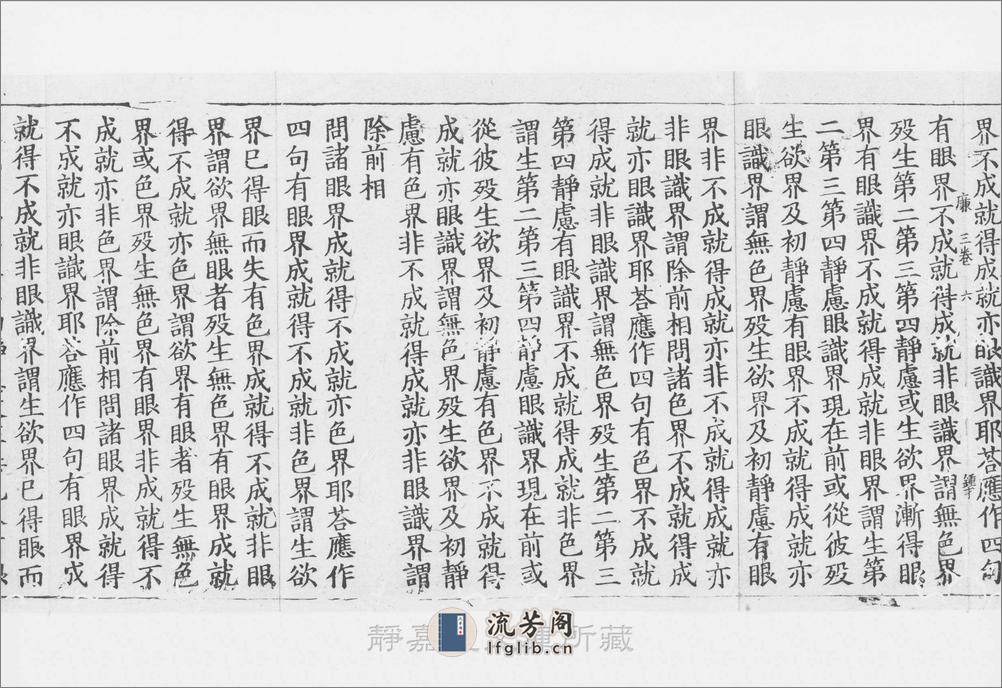 界不成就得成就亦眼識界耶荅應作四句
廉 三卷 六
有眼界不成就得成就非眼識界謂無色界
歿生第二第三第四靜慮或生欲界漸得眼
界有眼識界不成就得成就非眼界謂生第
二第三第四靜慮眼識界現在前或從彼歿
生欲界及初靜慮有眼界不成就得成就亦
眼識界謂無色界歿生欲界及初靜慮有眼
界非不成就得成就亦非不成就得成就亦
非眼識界謂除前相問諸色界不成就得成
就亦眼識界耶荅應作四句有色界不成就
得成就非眼識界謂無色界歿生第二第三
第四靜慮有眼識界不成就得成就非色界
謂生第二第三第四靜慮眼識界現在前或
從彼歿生欲界及初靜慮有色界不成就得
成就亦眼識界謂無色界歿生欲界及初靜
慮有色界非不成就得成就亦非眼識界謂
除前相
問諸眼界成就得不成就亦色界耶荅應作
四句有眼界成就得不成就非色界謂生欲
界已得眼而失有色界成就得不成就非眼
界謂欲界無眼者歿生無色界有眼界成就
得不成就亦色界謂欲界有眼者歿生無色
界或色界歿生無色界有眼界非成就得不
成就亦非色界謂除前相問諸眼界成就得
不成就亦眼識界耶荅應作四句有眼界成
就得不成就非眼識界謂生欲界已得眼而
靜嘉
所藏
流芳阁
lfglib.cn